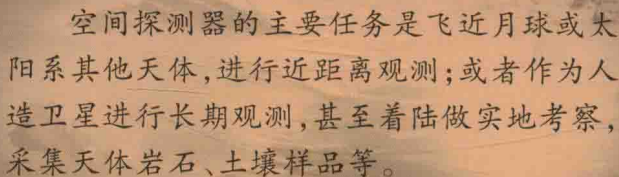 空间探测器的主要任务是飞近月球或太
阳系其他天体,进行近距离观测;或者作为人
造卫星进行长期观测,甚至着陆做实地考察,
采集天体岩石、土壤样品等。